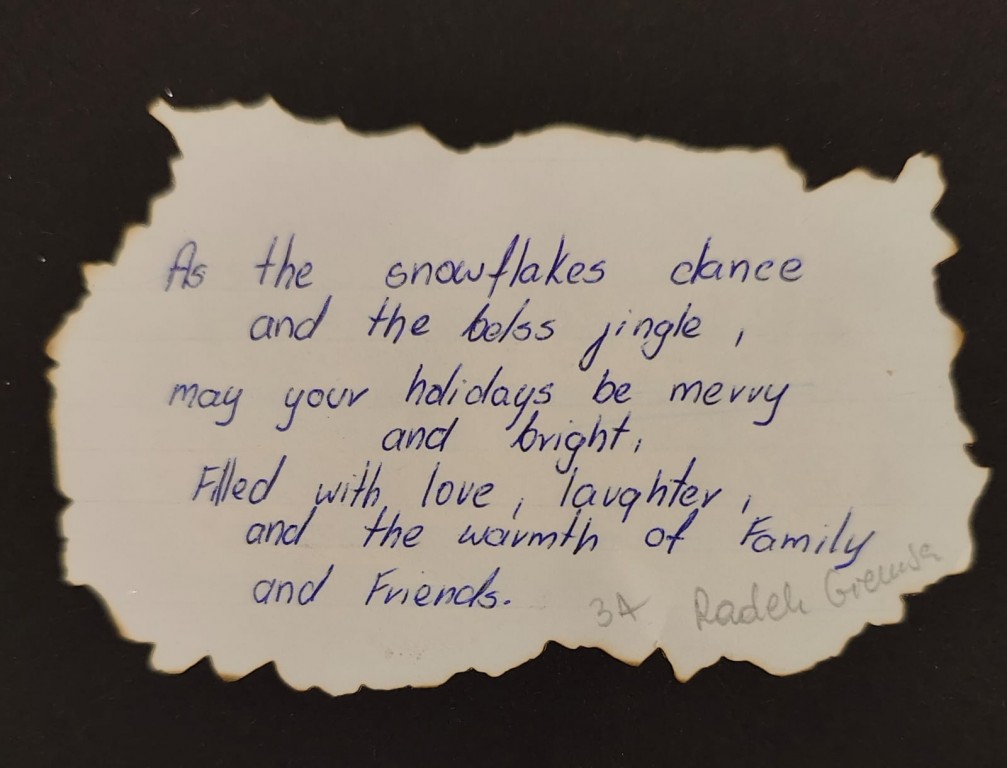 As the snowflakes dance
and the belss jingle,
may your holidays be merry
and bright,
Filled with love, laughter,
and the warmth of Family
and Friends.
3A Radek